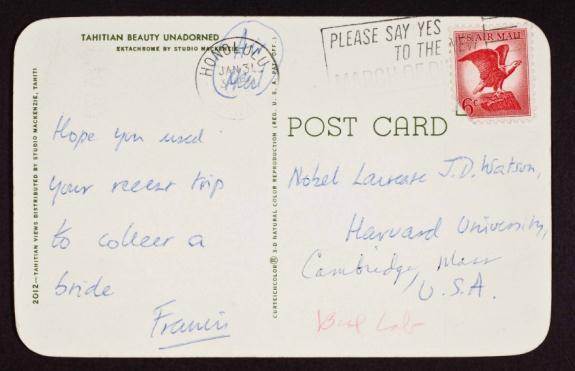 TAHITIAN BEAUTY UNADORNED
EKTACHROME BY STUDIO MACKENZIE
2012—TAHITIAN VIEWS DISTRIBUTED BY STUDIO MACKENZIE, PAPEETE, TAHITI
Hope you used
your recent trip
to collect a
bride
Francis
CURTEICHCOLOR® 3-D NATURAL COLOR REPRODUCTION (REG. U. S. A. PAT. OFF.)
HONOLULU
JAN 31
Air
Mail
PLEASE SAY YES
TO THE NEW
MARCH OF DIMES
U.S. AIR MAIL
6¢
POST CARD
Nobel Laureate J.D. Watson,
Harvard University,
Cambridge, Mass
U.S.A.
Biol Lab